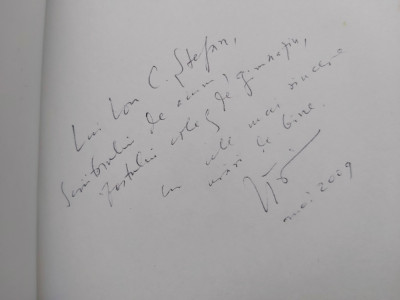 Lui Ion C. Ștefan,
scriitorului de acum,
fostului coleg de gimnaziu,
cu cele mai sincere
urări de bine.
mai 2009